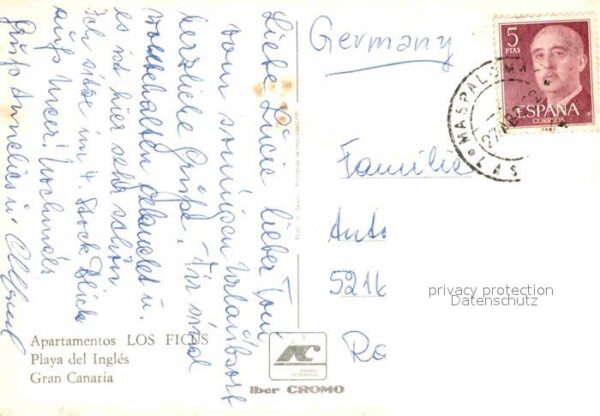 Liebe Lucie lieber Toni,
vom sonnigen Urlaubsort
herzliche Grüße. Wir sind
wohlbehalten gelandet u.
es ist hier sehr schön
Ich sitze im 4. Stock Blick
aufs Meer! Nochmals
Gruß Annelies u. Alfred
Germany
Familie
Anto
5216
Apartamentos LOS FICUS
Playa del Inglés
Gran Canaria
Iber CROMO
5
PTAS
ESPAÑA
CORREOS
MASPALOMA
LAS
privacy protection
Datenschutz